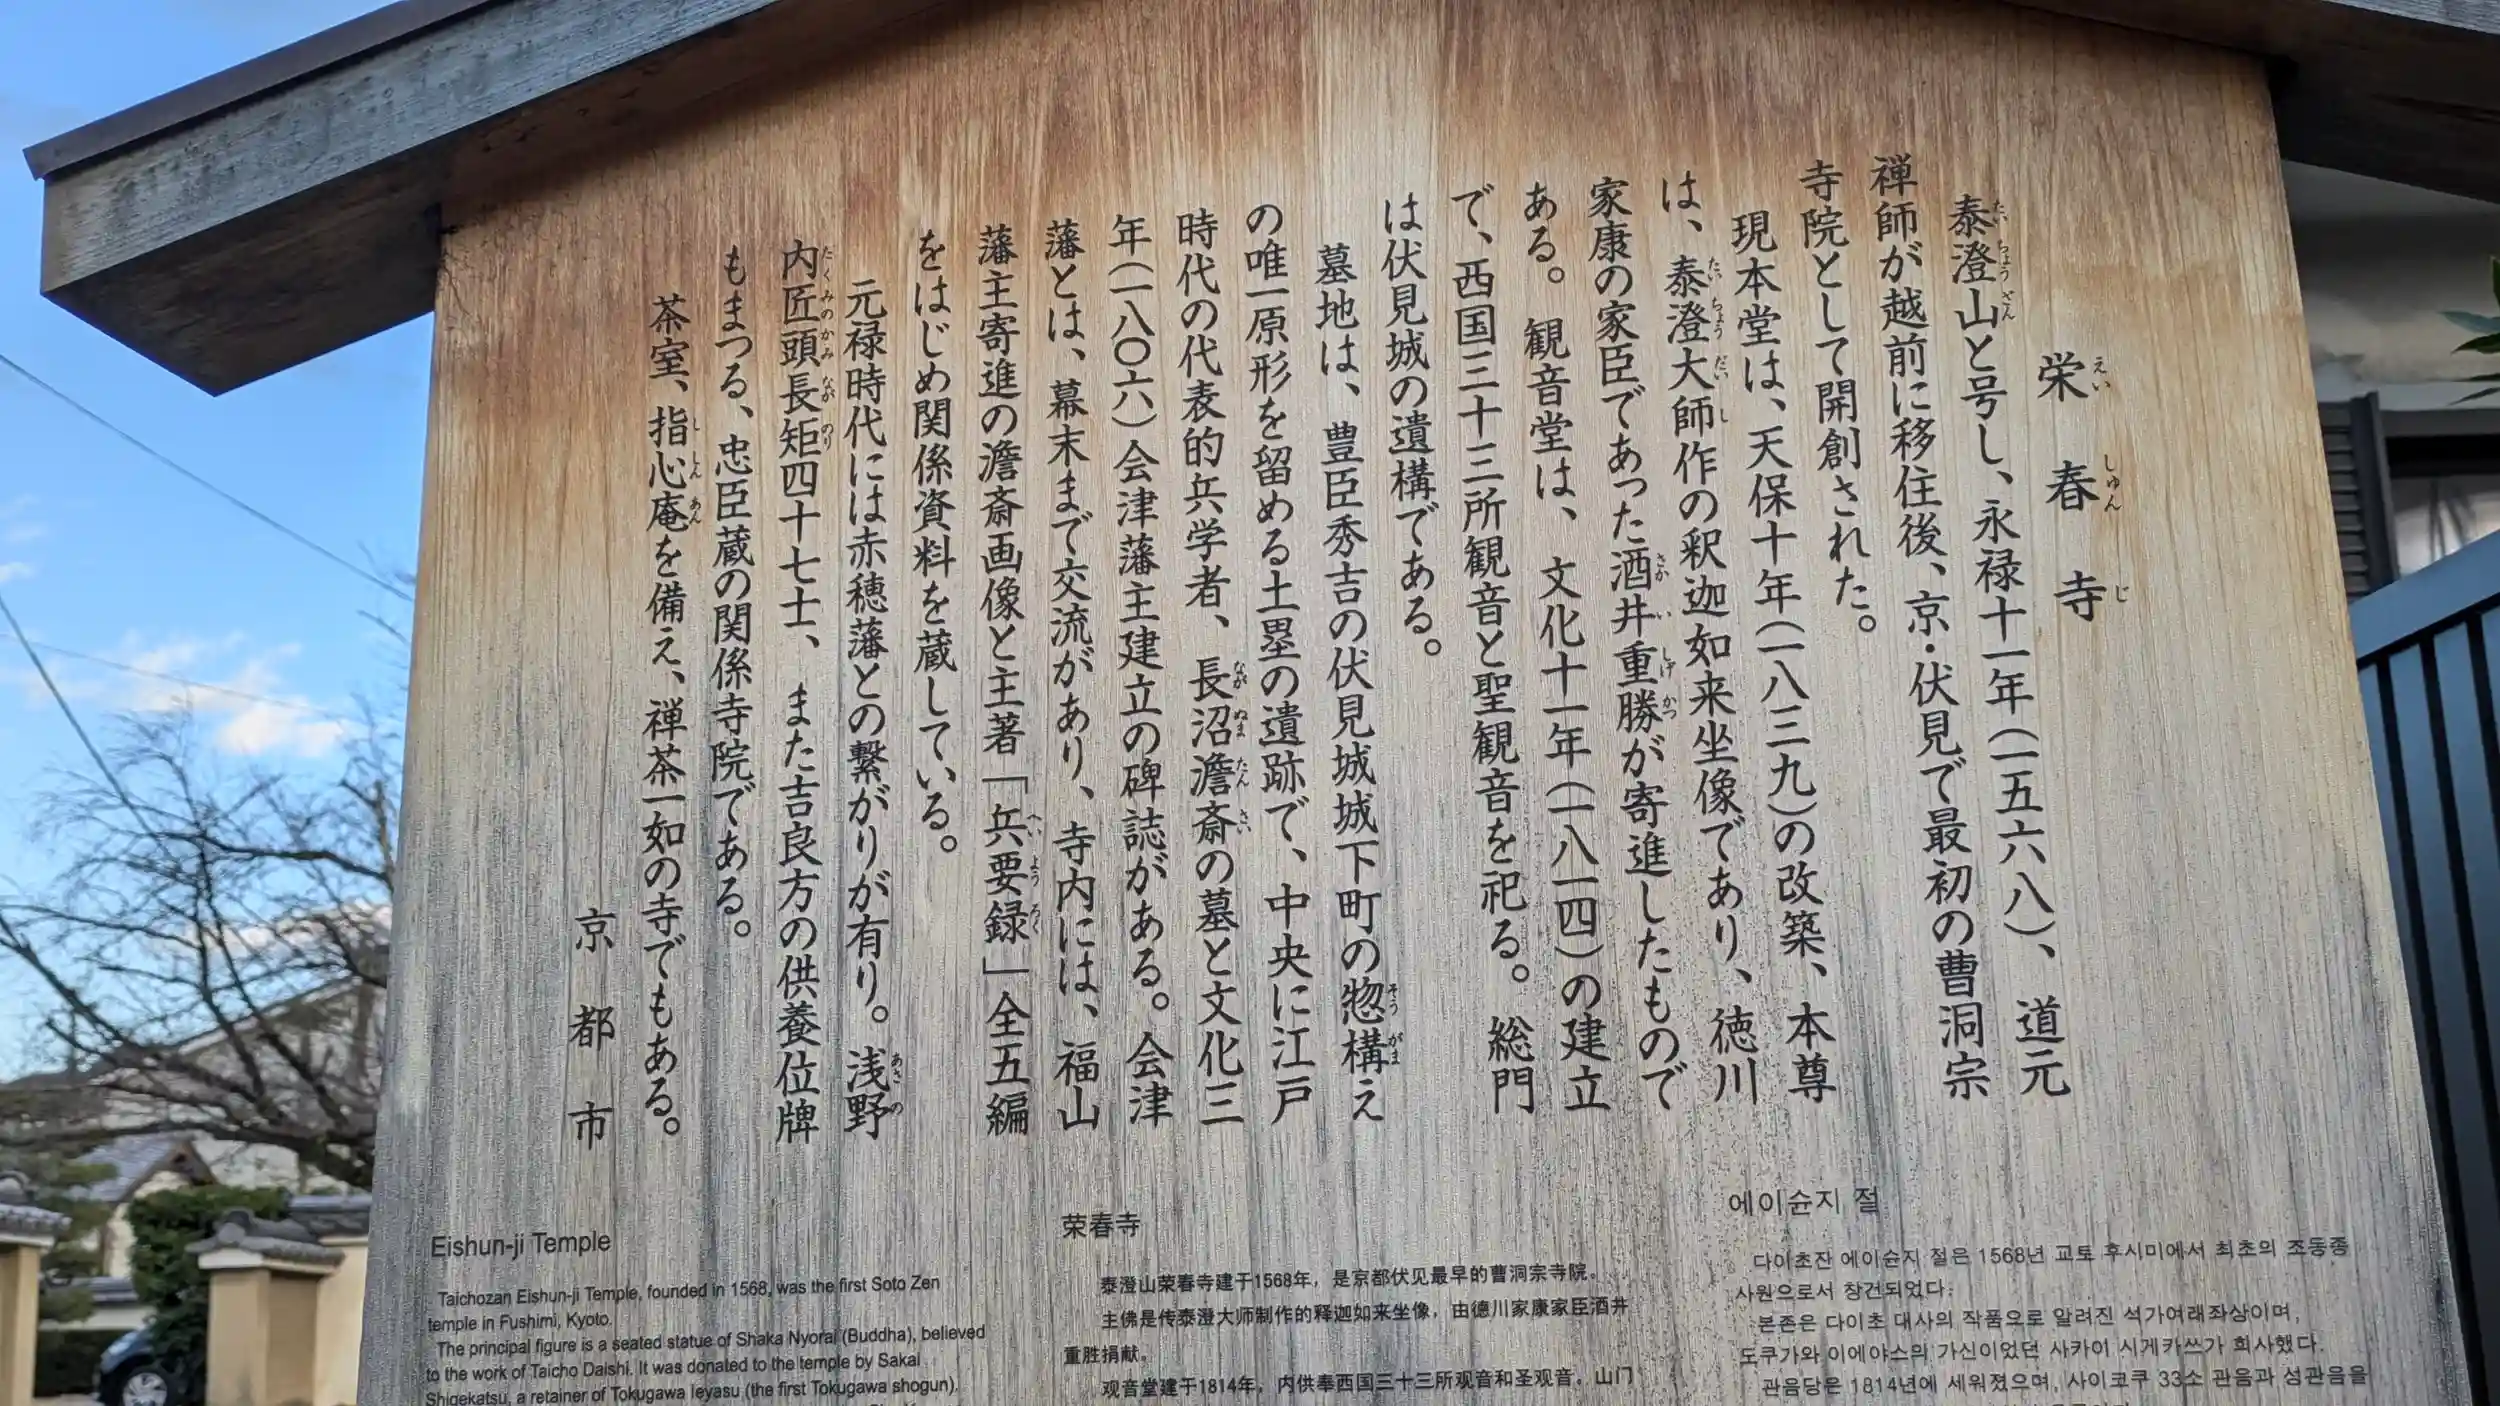 栄春寺
泰澄山と号し、永禄十一年(一五六八)、道元
禅師が越前に移住後、京・伏見で最初の曹洞宗
寺院として開創された。
現本堂は、天保十年(一八三九)の改築、本尊
は、泰澄大師作の釈迦如来坐像であり、徳川
家康の家臣であった酒井重勝が寄進したもので
ある。観音堂は、文化十一年(一八一四)の建立
で、西国三十三所観音と聖観音を祀る。総門
は伏見城の遺構である。
墓地は、豊臣秀吉の伏見城城下町の惣構え
の唯一原形を留める土塁の遺跡で、中央に江戸
時代の代表的兵学者、長沼澹斎の墓と文化三
年(一八〇六)会津藩主建立の碑誌がある。会津
藩とは、幕末まで交流があり、寺内には、福山
藩主寄進の澹斎画像と主著「兵要録」全五編
をはじめ関係資料を蔵している。
元禄時代には赤穂藩との繋がりが有り。浅野
内匠頭長矩四十七士、また吉良方の供養位牌
もまつる、忠臣蔵の関係寺院である。
茶室、指心庵を備え、禅茶一如の寺でもある。
京都市
Eishun-ji Temple
Taichozan Eishun-ji Temple, founded in 1568, was the first Soto Zen
temple in Fushimi, Kyoto.
The principal figure is a seated statue of Shaka Nyorai (Buddha), believed
to the work of Taicho Daishi. It was donated to the temple by Sakai
Shigekatsu, a retainer of Tokugawa Ieyasu (the first Tokugawa shogun).
荣春寺
泰澄山荣春寺建于1568年，是京都伏见最早的曹洞宗寺院。
主佛是传泰澄大师制作的释迦如来坐像，由德川家康家臣酒井
重胜捐献。
观音堂建于1814年，内供奉西国三十三所观音和圣观音。山门
에이슌지 절
다이초잔 에이슌지 절은 1568년 교토 후시미에서 최초의 조동종
사원으로서 창건되었다.
본존은 다이초 대사의 작품으로 알려진 석가여래좌상이며,
도쿠가와 이에야스의 가신이었던 사카이 시게카쓰가 희사했다.
관음당은 1814년에 세워졌으며, 사이코쿠 33소 관음과 성관음을